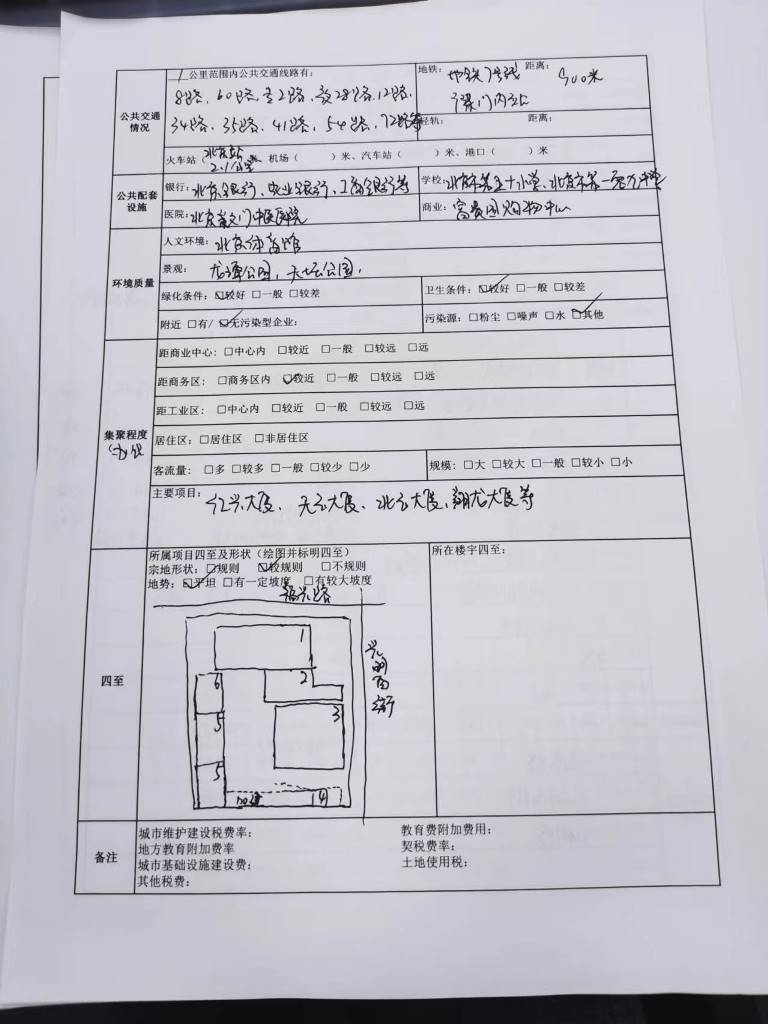 1公里范围内公共交通线路有:
地铁: 地铁7号线 距离: 500米
8路、60路、专2路、夜28路、12路、
34路、35路、41路、54路、72路等
轻轨: 距离:
公共交通
情况
火车站(北京站
2.1公里 机场( )米、汽车站( )米、港口( )米
公共配套
设施
银行: 北京银行、农业银行、工商银行等
学校:
医院: 北京崇文门中医医院
商业: 富贵园购物中心
环境质量
人文环境: 北京体育馆
景观: 龙潭公园, 天坛公园,
绿化条件: ☑较好 □一般 □较差
卫生条件: ☑较好 □一般 □较差
附近 □有/ ☑无污染型企业:
污染源: □粉尘 □噪声 □水 ☑其他
集聚程度
距商业中心: □中心内 □较近 □一般 □较远 □远
距商务区: □商务区内 ☑较近 □一般 □较远 □远
距工业区: □中心内 □较近 □一般 □较远 □远
居住区: □居住区 □非居住区
客流量: □多 □较多 □一般 □较少 □少
规模: □大 □较大 □一般 □较小 □小
主要项目: 红兴大厦、天玉大厦、北玉大厦、翔龙大厦等
四至
所属项目四至及形状(绘图并标明四至)
宗地形状: ☑规则 ☑较规则 □不规则
地势: ☑平坦 □有一定坡度 □有较大坡度
所在楼宇四至:
幸福路
光明西街
1
2
3
6
5
5
4
备注
城市维护建设税费率:
教育费附加费用:
地方教育附加费率
契税费率:
城市基础设施建设费:
土地使用税:
其他税费: